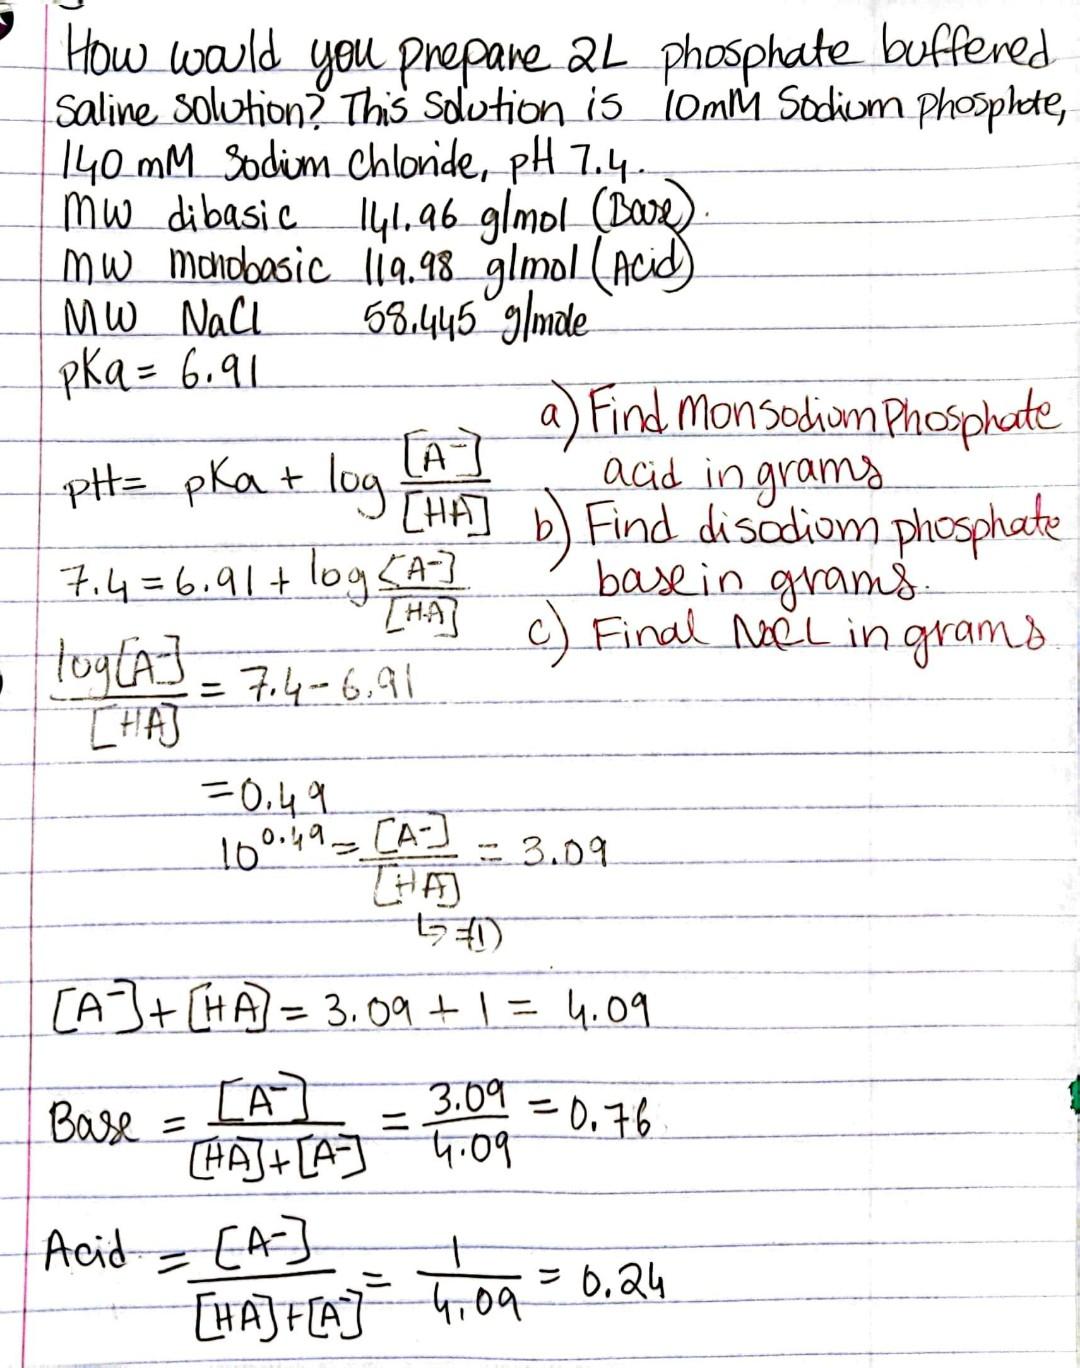 How would you prepare 2L phosphate buffered
saline solution? This Solution is 10mM Sodium phosphate,
140 mM Sodium Chloride, pH 7.4.
MW dibasic 141.96 g/mol (Base).
MW monobasic 119.98 g/mol (Acid)
MW NaCl 58.445 g/mole
pKa = 6.91
a) Find Monsodium Phosphate
acid in grams
b) Find disodium phosphate
base in grams.
c) Final NaCL in grams
pH = pKa + log [A⁻]
[HA]
7.4 = 6.91 + log [A-]
[HA]
log[A-] = 7.4 - 6.91
[HA]
= 0.49
10^0.49 = [A-] = 3.09
[HA]
↳ =(1)
[A⁻] + [HA] = 3.09 + 1 = 4.09
Base = [A⁻] = 3.09 = 0.76
[HA]+[A⁻] 4.09
Acid = [A-] = 1 = 0.24
[HA]+[A⁻] 4.09